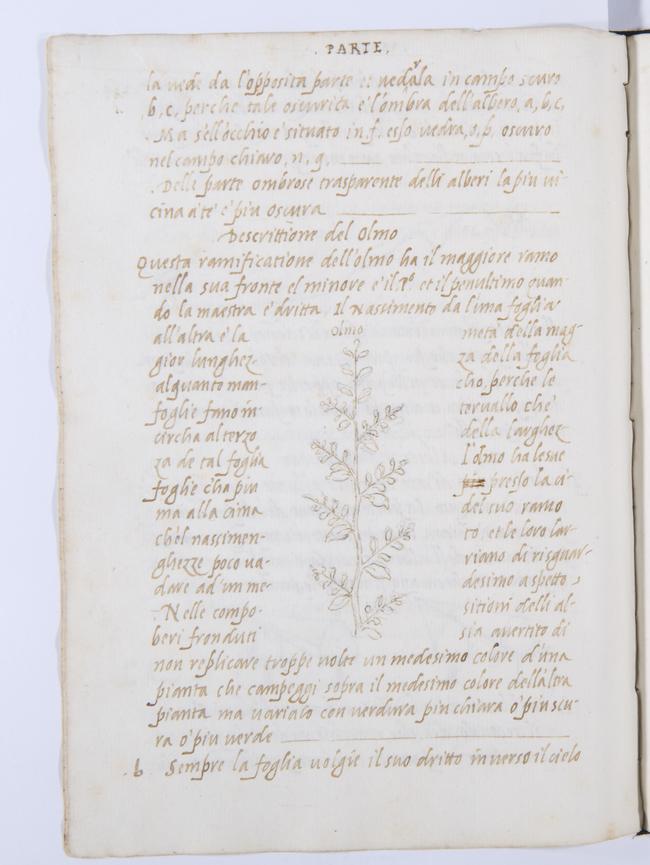 . PARTE.
la vede da l'opposita parte et vedrala in campo scuro
,b,c, perche tale oscurita e l'ombra dell'albero, a, b, c,
. Ma s'ell'occhio e situato in, f, esso vedra, o, p, oscuro
nel campo chiaro, n, g,
. Delli parte ombrose trasparente delli alberi la piu vi-
cina a te e piu oscura
Descrittione del Olmo
Questa ramificatione dell'olmo ha il maggiore ramo
nella sua fronte el minore e il et il penultimo quan-
do la maestra e dritta. Il Nascimento da l'una foglia
all'altra e la meta della mag-
olmo
gior lunghez- za della foglia
alquanto man- cho, perche le
foglie fano in- tervallo che
circha al terzo della larghez
za de tal foglia l'olmo ha le sue
foglie c'ha piu presso la ci-
ma alla cima del suo ramo
ch'el nassimen- to, et le loro lar-
ghezze poco va- riano di risguar-
dare ad un me- desimo aspetto,
. Nelle compo- sitioni delli al-
beri fronduti sia avertito di
non replicare troppe volte un medesimo colore d'una
pianta che campeggi sopra il medesimo colore dell'altra
pianta ma varialo con verdura piu chiara o piu scu-
ra o piu verde
. b Sempre la foglia volgie il suo dritto inverso il cielo